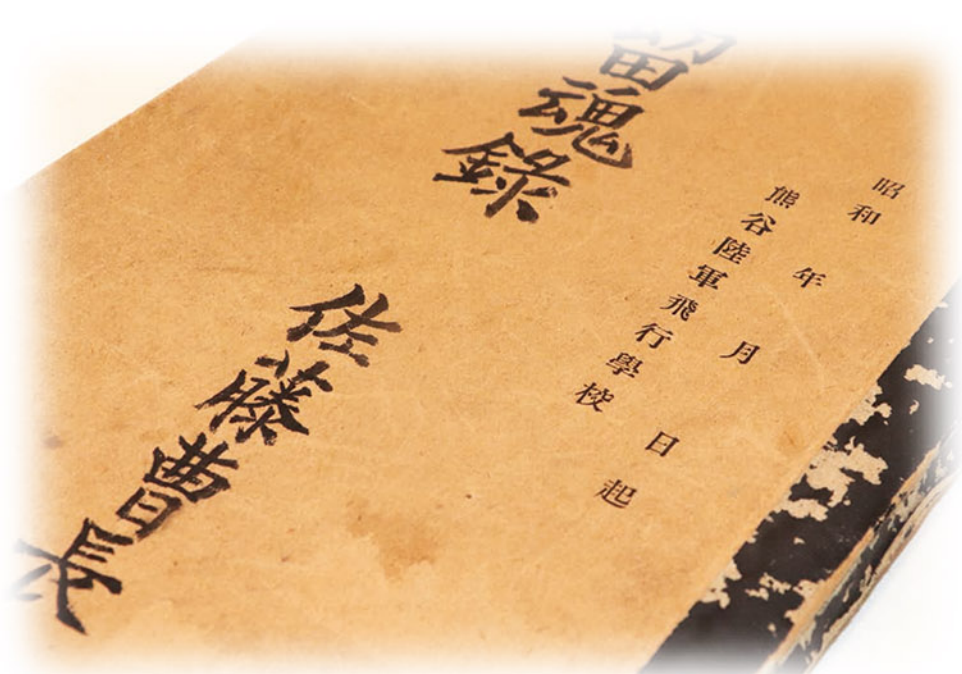 昭和　年　月　日起
熊谷陸軍飛行學校
留魂錄
佐藤曹長